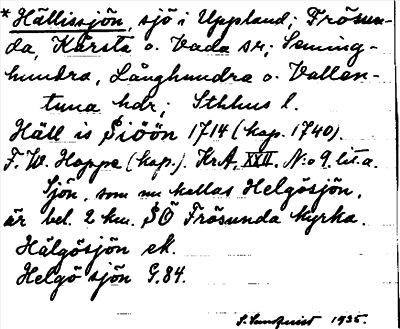 * Hällissjön, sjö i Uppland; Frösun-
da, Kårsta o. Vada sr; Seming-
hundra, Långhundra o. Vallen-
tuna hdr; Sthlms l.
Häll is Siöön 1714 (kop. 1740).
F. W. Hoppe (kop.). KrA, XXV. N:o 9. lit. a.
Sjön, som nu kallas Helgösjön,
är bel. 2 km. SÖ Frösunda kyrka.
Hälgösjön ek.
Helgö sjön G.84.
S. Sundquist 1935.